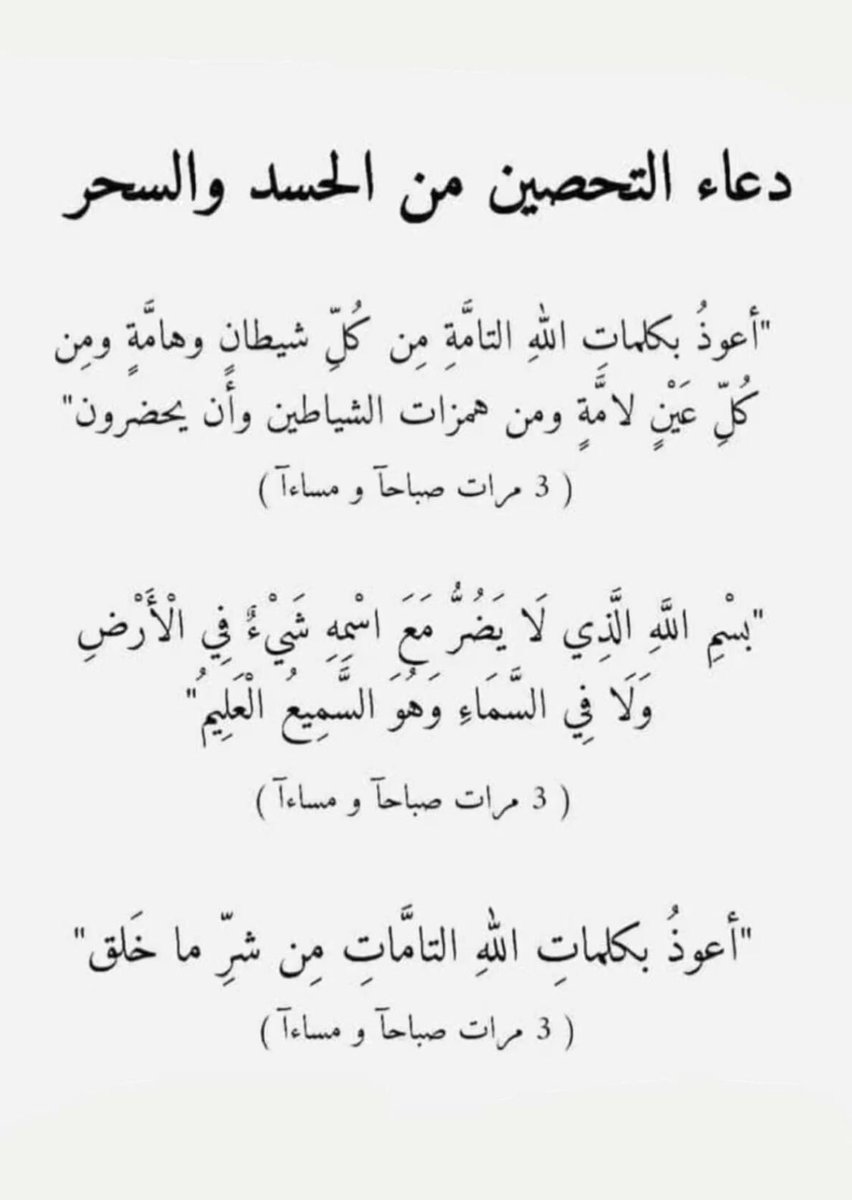 دعاء التحصين من الحسد والسحر
"أعوذُ بكلماتِ اللهِ التامَّةِ مِن كُلِّ شيطانٍ وهامَّةٍ ومِن
كُلِّ عَيْنٍ لامَّةٍ ومن همزات الشياطين وأن يحضرون"
( 3 مرات صباحآ و مساءآ )
"بِسْمِ اللَّهِ الَّذِي لَا يَضُرُّ مَعَ اسْمِهِ شَيْءٌ فِي الْأَرْضِ
وَلَا فِي السَّمَاءِ وَهُوَ السَّمِيعُ الْعَلِيمُ"
( 3 مرات صباحآ و مساءآ )
"أعوذُ بكلماتِ اللهِ التامَّاتِ مِن شرِّ ما خَلق"
( 3 مرات صباحآ و مساءآ )